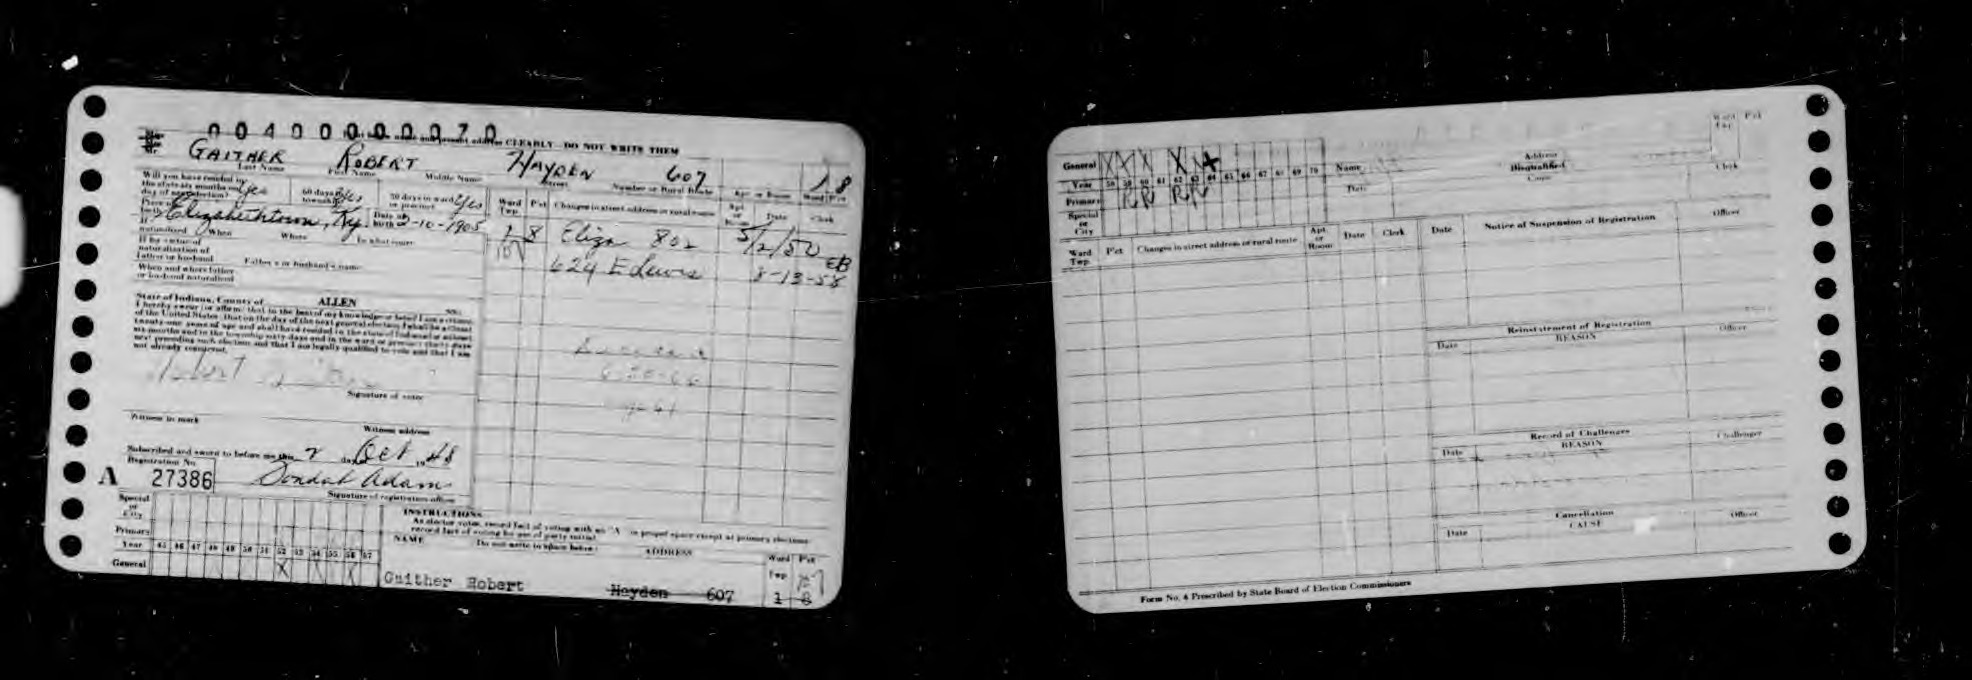 00400000070
CLEARLY—DO NOT WRITE THEM
GAITHER ROBERT HAYDEN 607 1 8
Last Name First Name Middle Name Street Number or Rural Route Apt. or Room Ward Pct
Will you have resided in
the state six months on Yes 60 days in Yes 30 days in ward Yes
day of next election? township or precinct
Elizabethtown, Ky. Date of birth 2-10-1905
naturalized When Where In what court
If by virtue of
naturalization of
father or husband Father's or husband's name
When and where father
or husband naturalized
State of Indiana, County of ALLEN SS:
I hereby swear (or affirm) that to the best of my knowledge or belief I am a citizen
of the United States, that on the day of the next general election I shall be at least
twenty-one years of age and shall have resided in the state of Indiana at least
six months and in the township sixty days and in the ward or precinct thirty days
next preceding such election and that I am legally qualified to vote and that I am
not already registered.
Signature of voter
Witness to mark
Witness address
Subscribed and sworn to before me this 2 day Oct 1948
Registration No.
A 27386
Signature of registration officer
Ward Twp. Pct Changes in street address or rural route Apt. or Room Date Clerk
1 8 Eliza 802 5/2/50 EB
107 624 E Lewis 8-13-58
Special or City
Primary
Year 45 46 47 48 49 50 51 52 53 54 55 56 57
General X X X
INSTRUCTIONS
As elector votes, record fact of voting with an "X" in proper space except at primary elections
record fact of voting by use of party initial.
NAME Do not write in space below ADDRESS Ward Twp Pct
Gaither Robert Hayden 607 1 8
General X X X X X
Year 58 59 60 61 62 63 64 65 66 67 68 69 70
Primary R R R R
Special or City
Name Address
Disqualified
Date Cause Clerk
Ward Twp. Pct
Ward Twp. Pct Changes in street address or rural route Apt. or Room Date Clerk
Date Notice of Suspension of Registration Officer
Reinstatement of Registration
Date REASON Officer
Record of Challenges
Date REASON Challenger
Cancellation
Date CAUSE Officer
Form No. 4 Prescribed by State Board of Election Commissioners